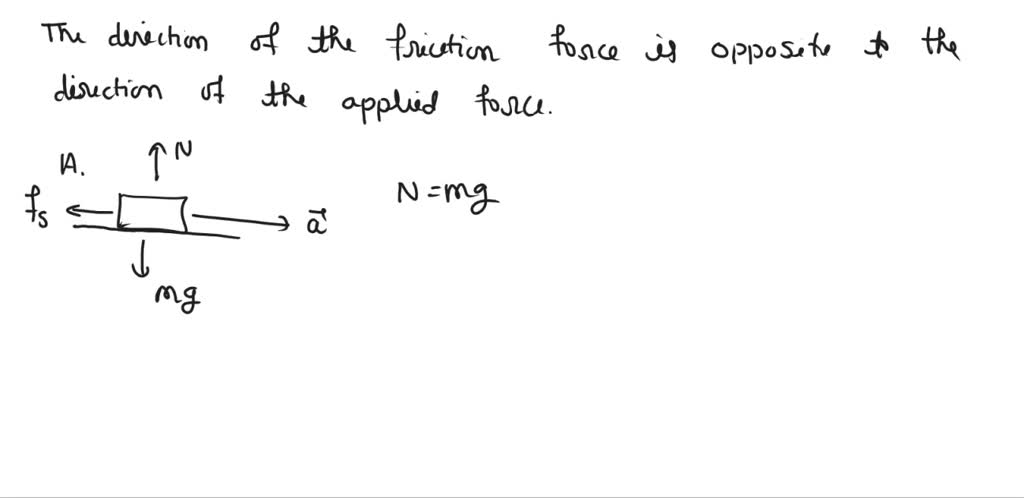 The direction of the friction force is opposite to the
direction of the applied force.
A.
N
N = mg
fs
a⃗
mg